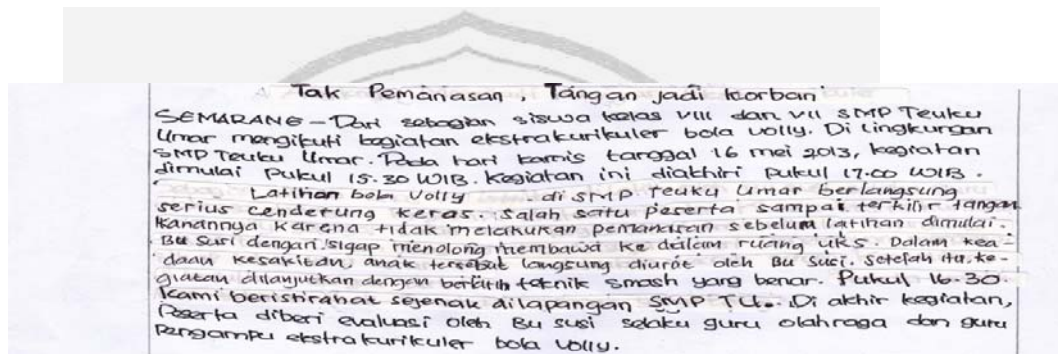 Tak Pemanasan, Tangan jadi korban
SEMARANG – Dari sebagian siswa kelas VIII dan VII SMP Teuku
Umar mengikuti kegiatan ekstrakurikuler bola volly. Di lingkungan
SMP Teuku Umar. Pada hari kamis tanggal 16 mei 2013, kegiatan
dimulai pukul 15.30 WIB. Kegiatan ini diakhiri pukul 17.00 WIB.
Latihan bola volly di SMP Teuku Umar berlangsung
serius cenderung keras. Salah satu peserta sampai terkilir tangan
kanannya karena tidak melakukan pemanasan sebelum latihan dimulai.
Bu Susi dengan sigap menolong membawa ke dalam ruang uks. Dalam kea-
daan kesakitan, anak tersebut langsung diurut oleh Bu Susi. Setelah itu, ke-
giatan dilanjutkan dengan berlatih teknik smash yang benar. Pukul 16.30.
Kami beristirahat sejenak dilapangan SMP TU. Di akhir kegiatan,
Peserta diberi evaluasi oleh Bu Susi selaku guru olahraga dan guru
pengampu ekstrakurikuler bola volly.